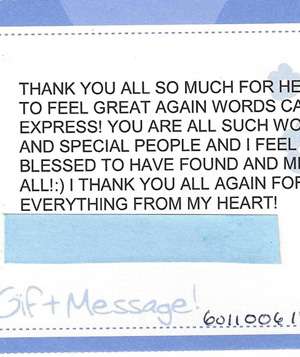 THANK YOU ALL SO MUCH FOR HE
TO FEEL GREAT AGAIN WORDS CA
EXPRESS! YOU ARE ALL SUCH WO
AND SPECIAL PEOPLE AND I FEEL
BLESSED TO HAVE FOUND AND ME
ALL!:) I THANK YOU ALL AGAIN FOR
EVERYTHING FROM MY HEART!
Gift Message!
60110061